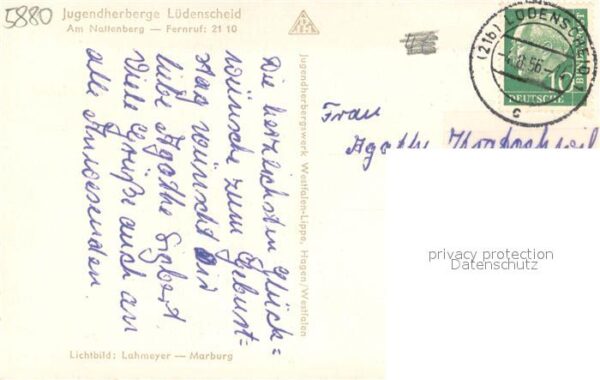 5880
Jugendherberge Lüdenscheid
Am Nattenberg — Fernruf: 21 10
Die herzlichsten Glück=
wünsche zum Geburts=
tag wünscht Dir
liebe Agathe
Viele Grüße auch an
alle Anwesenden
Jugendherbergswerk Westfalen-Lippe, Hagen/Westfalen
Lichtbild: Lahmeyer — Marburg
(21b) LÜDENSCHEID
56
c
10
DEUTSCHE
Frau
privacy protection
Datenschutz